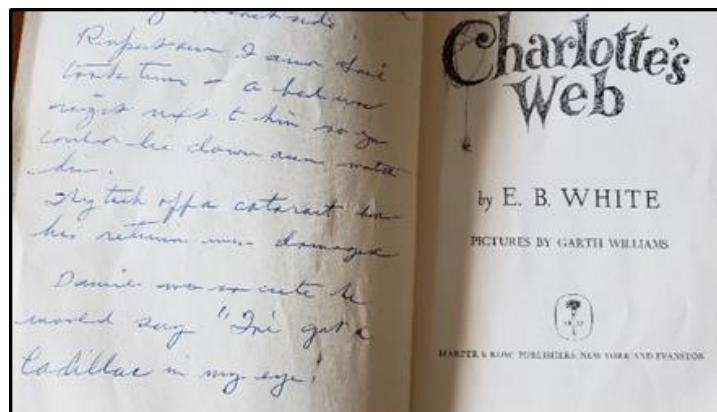 side!
I and
took turns – a bed was
right next to him so you
could lie down and watch
him.
They took off a cataract but
his retina was damaged
Daniel was so cute he
would say "I've got a
Cadillac in my eye!
Charlotte's
Web
by E. B. WHITE
PICTURES BY GARTH WILLIAMS
HARPER & ROW, PUBLISHERS, NEW YORK AND EVANSTON